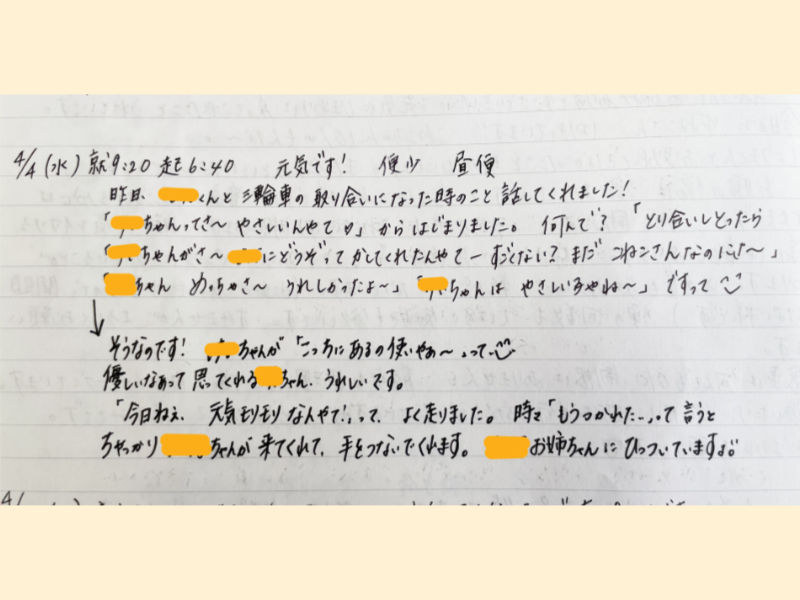 4/4(水) 就9:20 起6:40 元気です! 便少 昼便
昨日、くんと三輪車の取り合いになった時のこと話してくれました!
「ちゃんってさ〜 やさしいんやて♡」からはじまりました。何んで?「とり合いしとったら
「ちゃんがさ〜 にどうぞってかしてくれたんやてーすごくない?まだ こねこさんなのにさ〜」
「ちゃん めっちゃさ〜 うれしかったよ〜」「ちゃんは やさしいろやね〜」ですって
↓
そうなのです! ちゃんが「こっちにあるの使いやぁ〜」って
優しいなぁって思ってくれるちゃん、うれしいです。
「今日ねぇ、元気モリモリなんやで!」って、よく走りました。時々「もうつかれた…」って言うと
ちゃっかり ちゃんが来てくれて、手をつないでくれます。 お姉ちゃんにひっついていますよ
4/